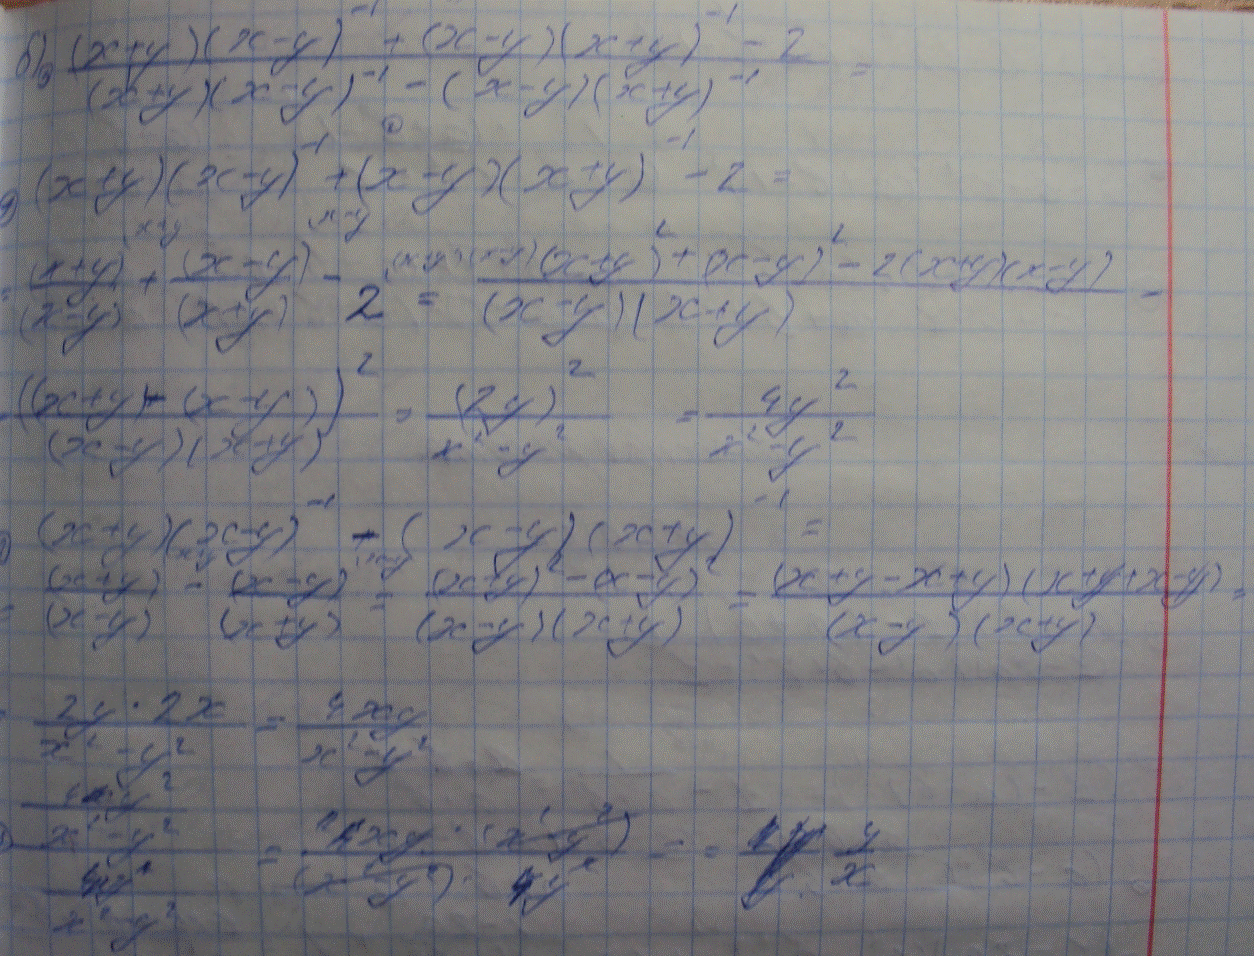 б) ((x+y)(x-y)^-1 + (x-y)(x+y)^-1 - 2) / ((x+y)(x-y)^-1 - (x-y)(x+y)^-1) =
(x+y)(x-y)^-1 + (x-y)(x+y)^-1 - 2 =
= (x+y)/(x-y) + (x-y)/(x+y) - 2 = ((x+y)^2 + (x-y)^2 - 2(x+y)(x-y)) / ((x-y)(x+y)) =
((x+y) - (x-y))^2 / ((x-y)(x+y)) = (2y)^2 / (x^2-y^2) = 4y^2 / (x^2-y^2)
(x+y)(x-y)^-1 - (x-y)(x+y)^-1 =
= (x+y)/(x-y) - (x-y)/(x+y) = ((x+y)^2 - (x-y)^2) / ((x-y)(x+y)) = (x+y-x+y)(x+y+x-y) / ((x-y)(x+y)) =
2y·2x / (x^2-y^2) = 4xy / (x^2-y^2)
= = y/x